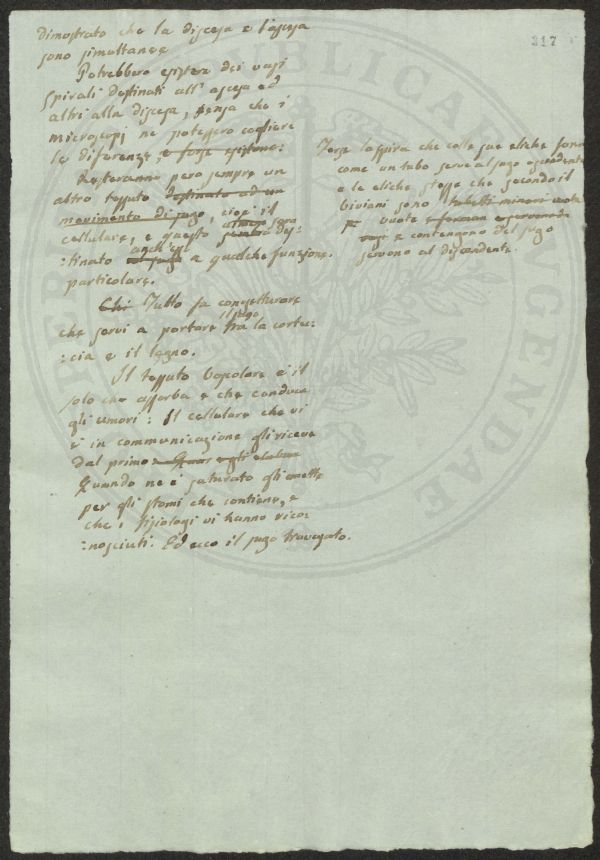 317
dimostrato che la discesa e l'ascesa
sono simultanee
Potrebbero esistere dei vasi
spirali destinati all' ascesa ed
altri alla discesa, senza che i
microscopj ne potessero cogliere
le differenze e forse esistono:
Resteranno però sempre un
altro tessuto destinato ad un
movimento di sugo, cioè il
cellulare, e questo sembra almeno sarà des:
:tinato al sugo anch'esso a qualche funzione
particolare.
Chi Tutto fa congetturare
che servi a portare il sugo tra la cortec:
:cia e il legno.
Il tessuto Vascolare è il
solo che assorba e che conduca
gli umori: Il cellulare che vi
è in communicazione gli riceve
dal primo e egli
Quando ne è saturato gli emette
per gli stomi che contiene, e
che i fisiologi vi hanno rico:
:nosciuti. Ed ecco il sugo traversato.
Forse la spira che colle sue eliche forma
come un tubo serve al sugo ascendente
e le eliche stesse che secondo il
Viviani sono tubetti minori vuoti
vuote e forman
e contengono del sugo
servono al discendente.
PERPUBLICAM AUGENDAE